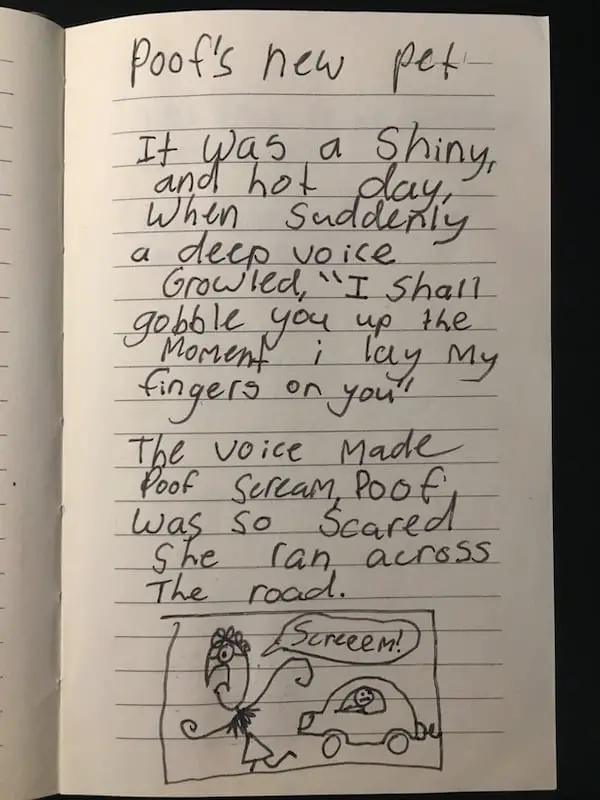 Poof's new pet
It was a Shiny,
and hot day,
When Suddenly
a deep voice
Growled, "I Shall
gobble you up the
Moment i lay My
fingers on you"
The voice Made
Poof Scream, Poof
was so Scared
She ran across
The road.
Screeem!